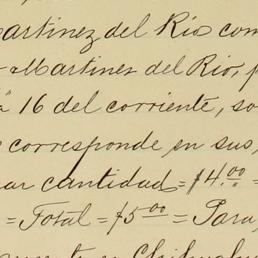 Martinez del Rio com
Martinez del Rio, p
a 16 del corriente, so
corresponde en sus,
ar cantidad = $4.00 =
= Total = $5.00 = Para,
en Chihuahu